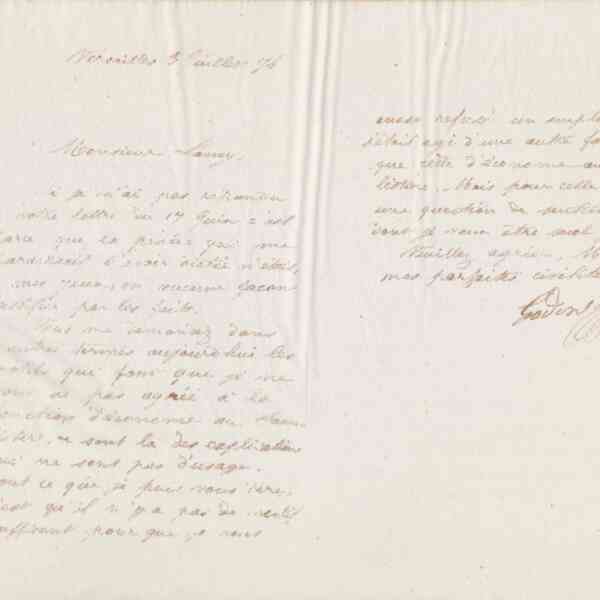 Versailles 3 Juillet 76
Monsieur Lamy,
i je n'ai pas répondu
votre lettre du 17 Juin c'est
parce que la pensée qui me
paraissait l'avoir dictée n'était,
mes yeux, en aucune façon
justifiée par les faits.
Vous me demandez dans
autres termes aujourd'hui les
motifs qui font que je ne
vous ai pas agréé à la
fonction d'économe au Famil
istère, ce sont là des explications
qui ne sont pas d'usage.
tout ce que je puis vous dire,
c'est qu'il n'y a pas de motif
suffisant pour que je vous
eusse refusé un emploi
s'était agi d'une autre fo
que celle d'économe au
listère. Mais pour celle
une question de
dont je veux être seul
Veuillez agréer, M
mes parfaites civilités
Godin